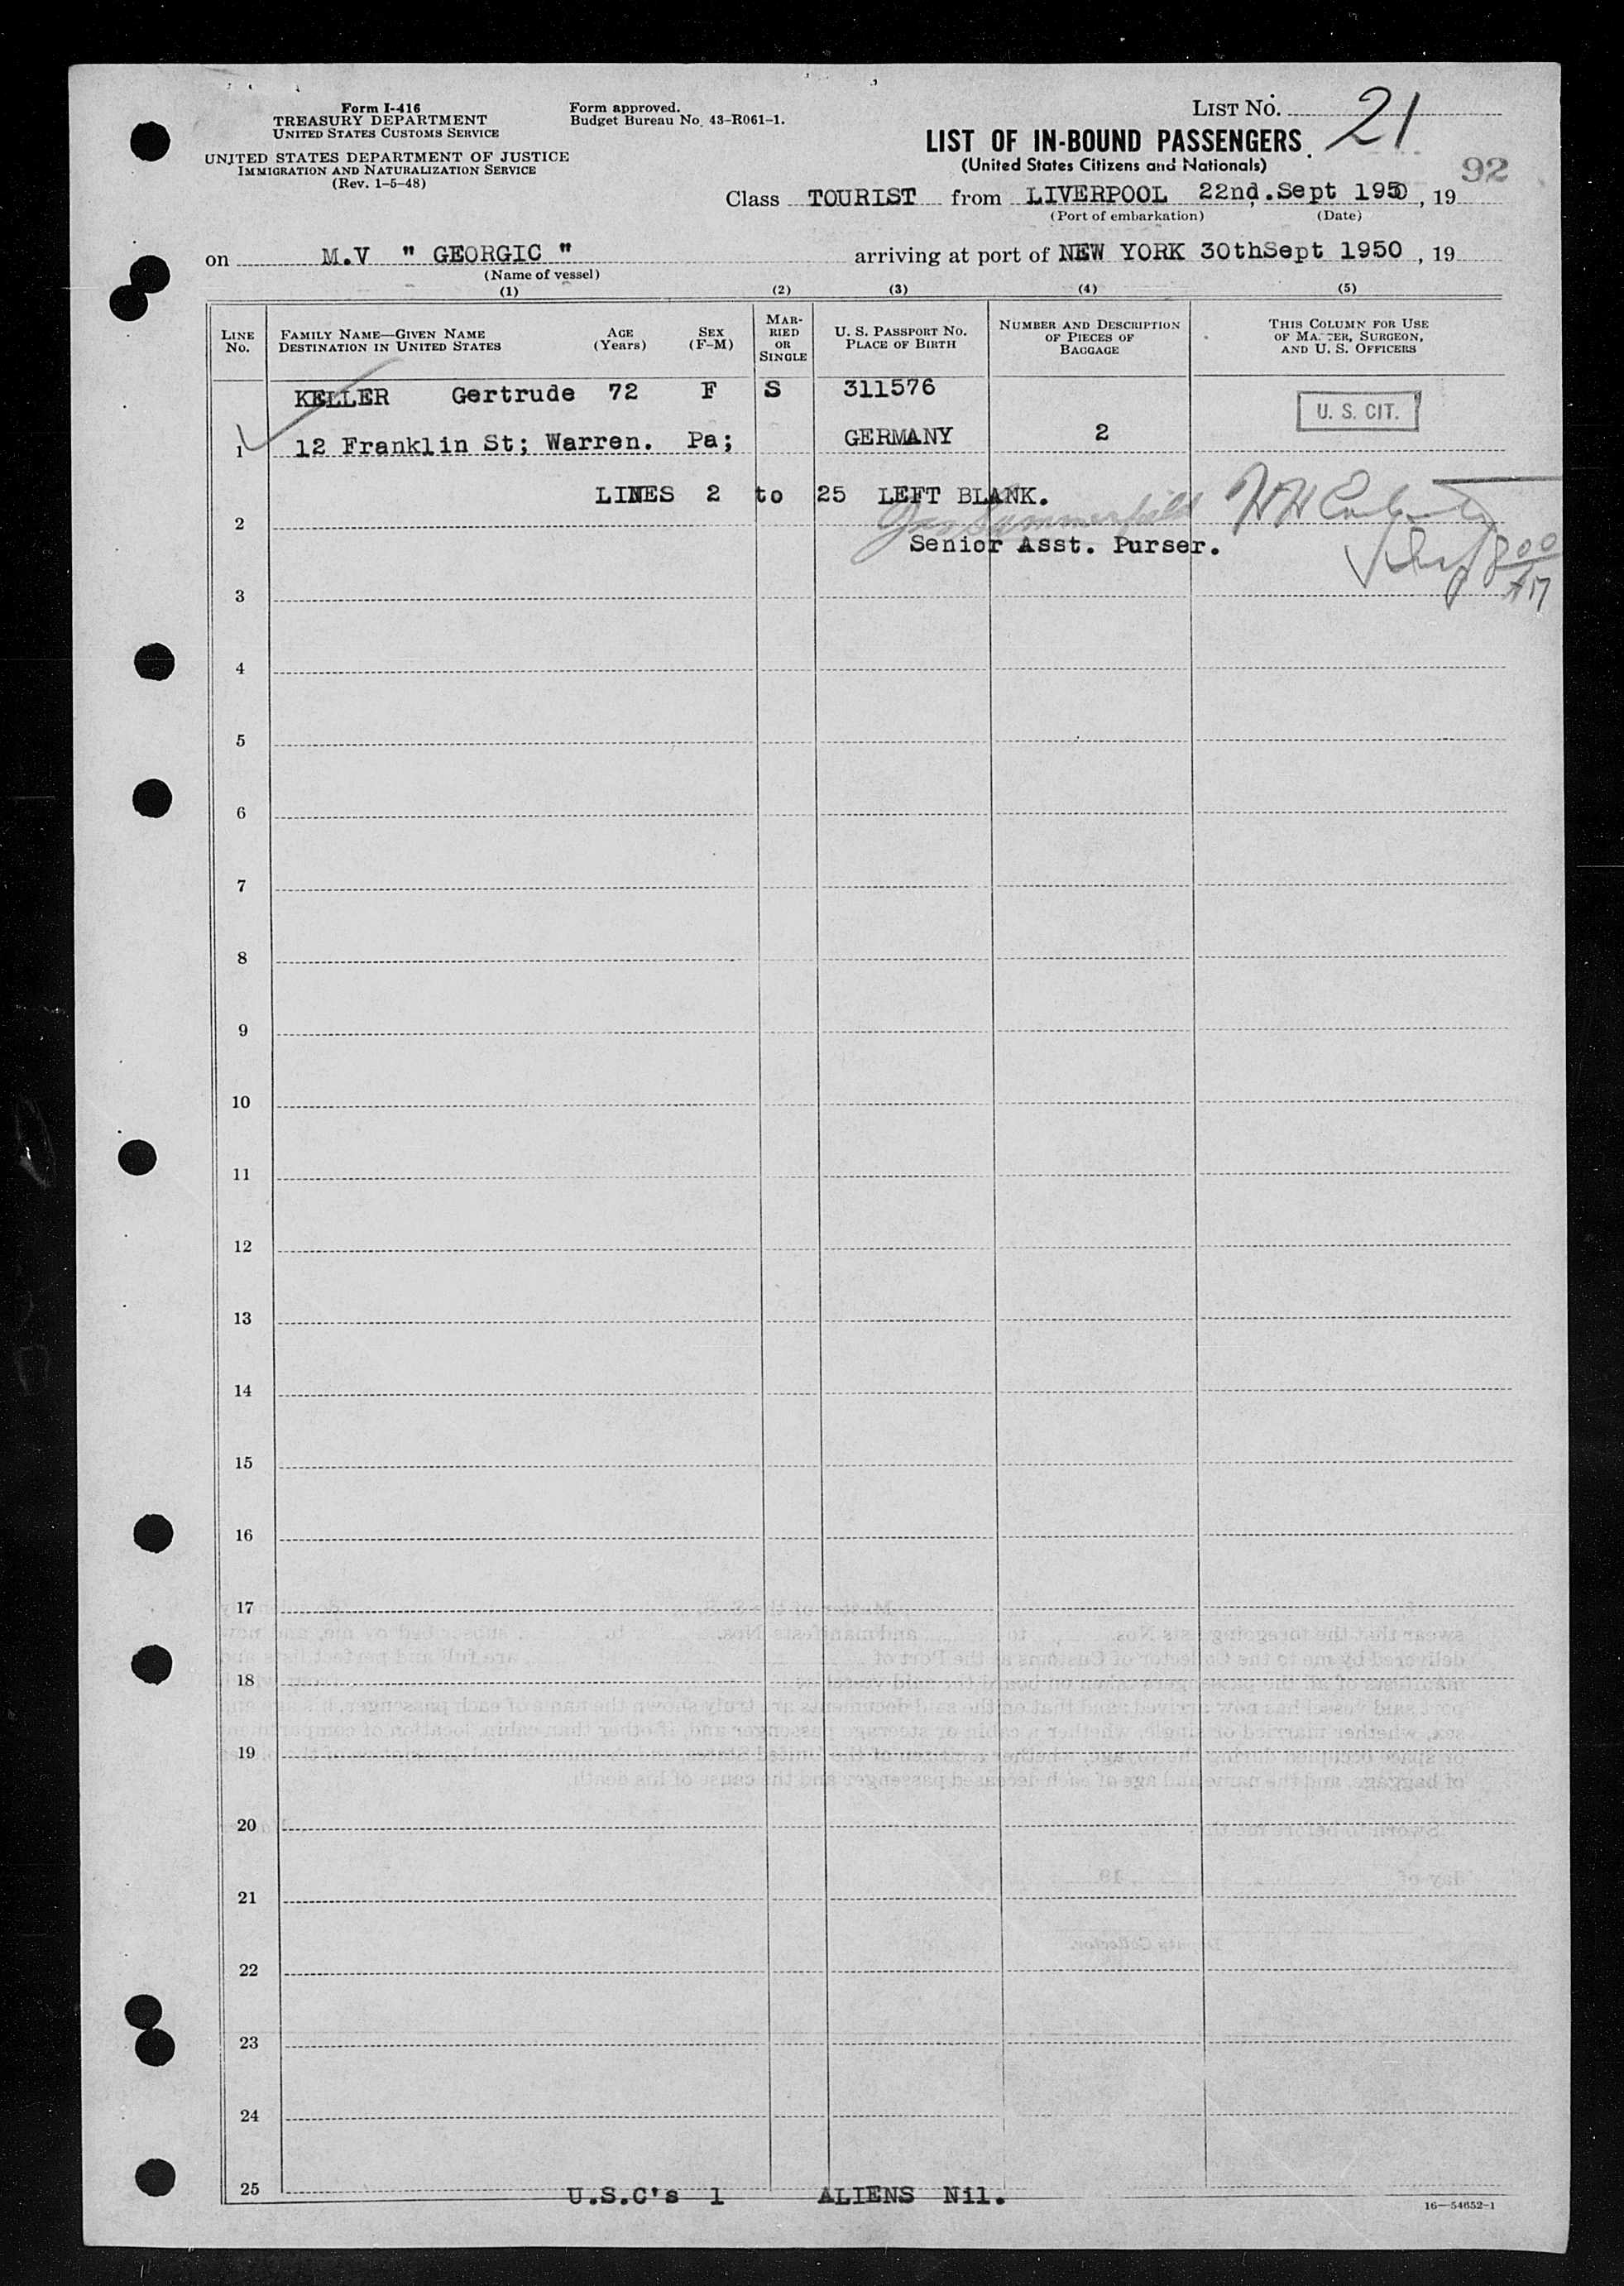 Form I-416
TREASURY DEPARTMENT
UNITED STATES CUSTOMS SERVICE
UNITED STATES DEPARTMENT OF JUSTICE
IMMIGRATION AND NATURALIZATION SERVICE
(Rev. 1-5-48)
Form approved.
Budget Bureau No. 43-R061-1.
LIST No. 21
LIST OF IN-BOUND PASSENGERS
(United States Citizens and Nationals)
92
Class TOURIST from LIVERPOOL 22nd.Sept 1950, 19
(Port of embarkation) (Date)
on M.V " GEORGIC " arriving at port of NEW YORK 30thSept 1950, 19
(Name of vessel)
(1) (2) (3) (4) (5)
LINE No.
FAMILY NAME—GIVEN NAME
DESTINATION IN UNITED STATES
AGE (Years)
SEX (F-M)
MARRIED OR SINGLE
U. S. PASSPORT No.
PLACE OF BIRTH
NUMBER AND DESCRIPTION OF PIECES OF BAGGAGE
THIS COLUMN FOR USE OF MASTER, SURGEON, AND U. S. OFFICERS
KELLER Gertrude 72 F S 311576
U. S. CIT.
1 12 Franklin St; Warren. Pa; GERMANY 2
LINES 2 to 25 LEFT BLANK.
2
Senior Asst. Purser.
3
4
5
6
7
8
9
10
11
12
13
14
15
16
17
18
19
20
21
22
23
24
25
U.S.C's 1 ALIENS Nil.
16—54652-1